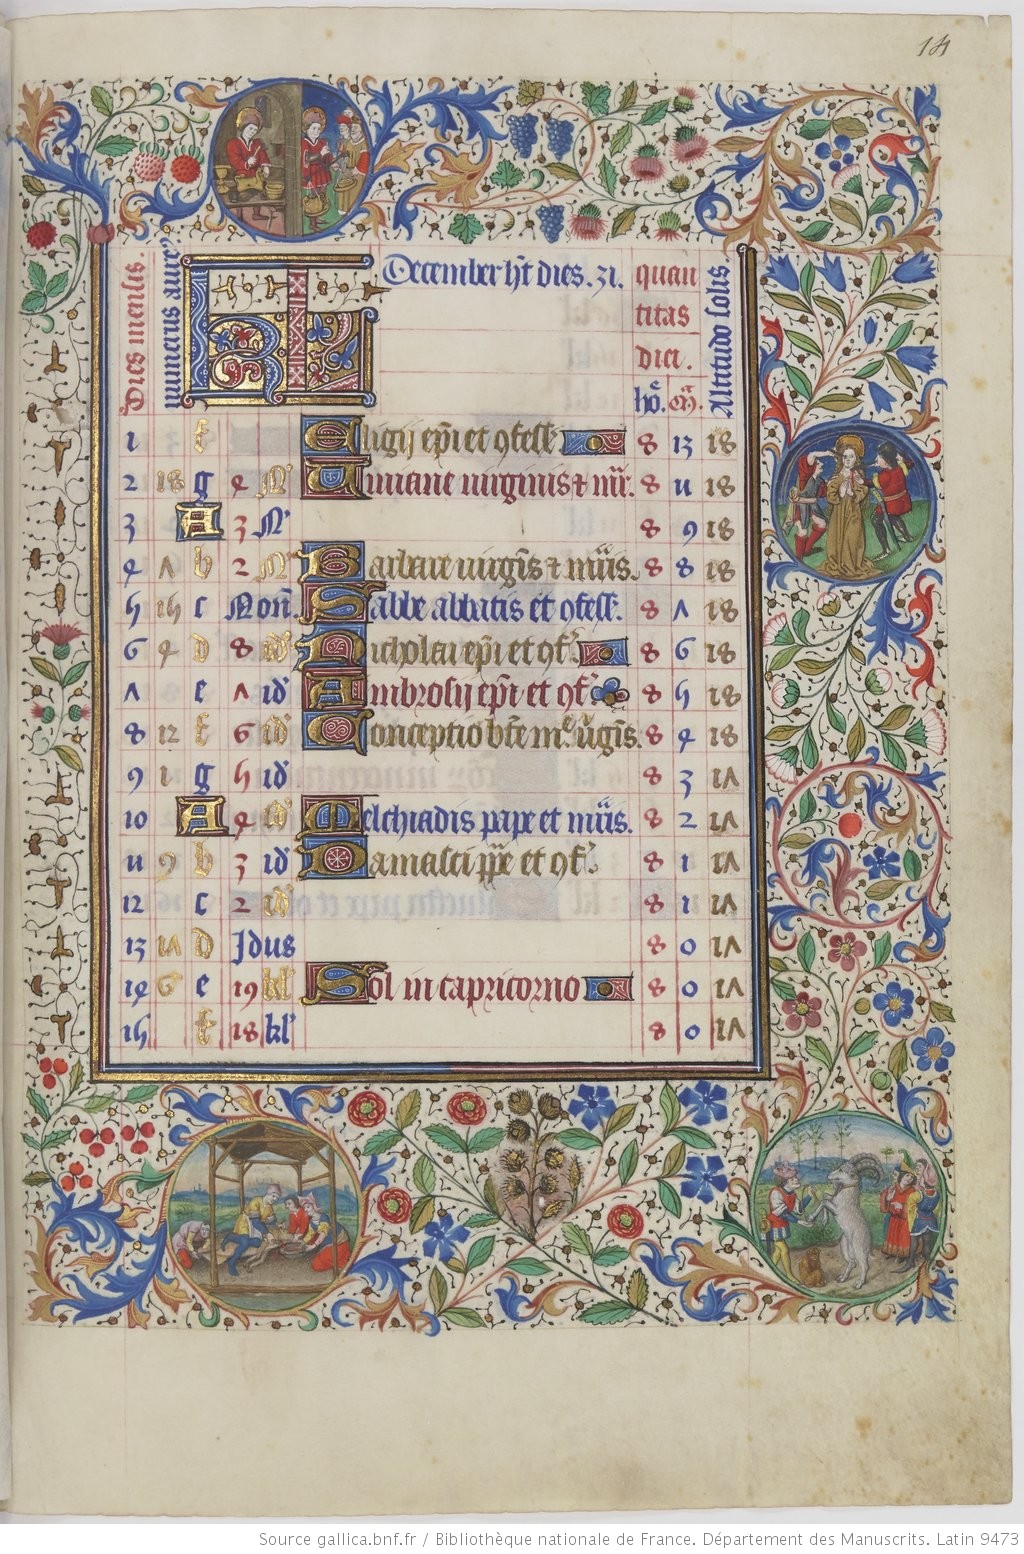 14
Dies mensis.
numerus aure9
KL
December h̄t dies. 31.
quan
titas
diei.
hō. m̄.
Altitudo solis
1 f Eligij ep̄i et ɔfess. 8 13 18
2 18 g 4 N̄ Uiuiane uirginis ⁊ m̄r. 8 11 18
3 A 3 N̄ 8 9 18
4 7 b 2 N̄ Barbare uirgīs ⁊ m̄is. 8 8 18
5 15 c Non̄. Sabbe abbatis et ɔfess. 8 7 18
6 4 d 8 id̄ Nicholai ep̄i et ɔf. 8 6 18
7 e 7 id̄ Ambrosij ep̄i et ɔf. 8 5 18
8 12 f 6 id̄ Conceptio bt̄e me͛ ūgīs. 8 4 18
9 1 g 5 id̄ 8 3 17
10 A 4 id̄ Melchiadis pape et m̄is. 8 2 17
11 9 b 3 id̄ Damasci pp̄e et ɔf. 8 1 17
12 c 2 id̄ 8 1 17
13 17 d Jdus 8 0 17
14 6 e 19 kl̄ Sol in capricorno 8 0 17
15 f 18 kl̄ 8 0 17
Source gallica.bnf.fr / Bibliothèque nationale de France. Département des Manuscrits. Latin 9473